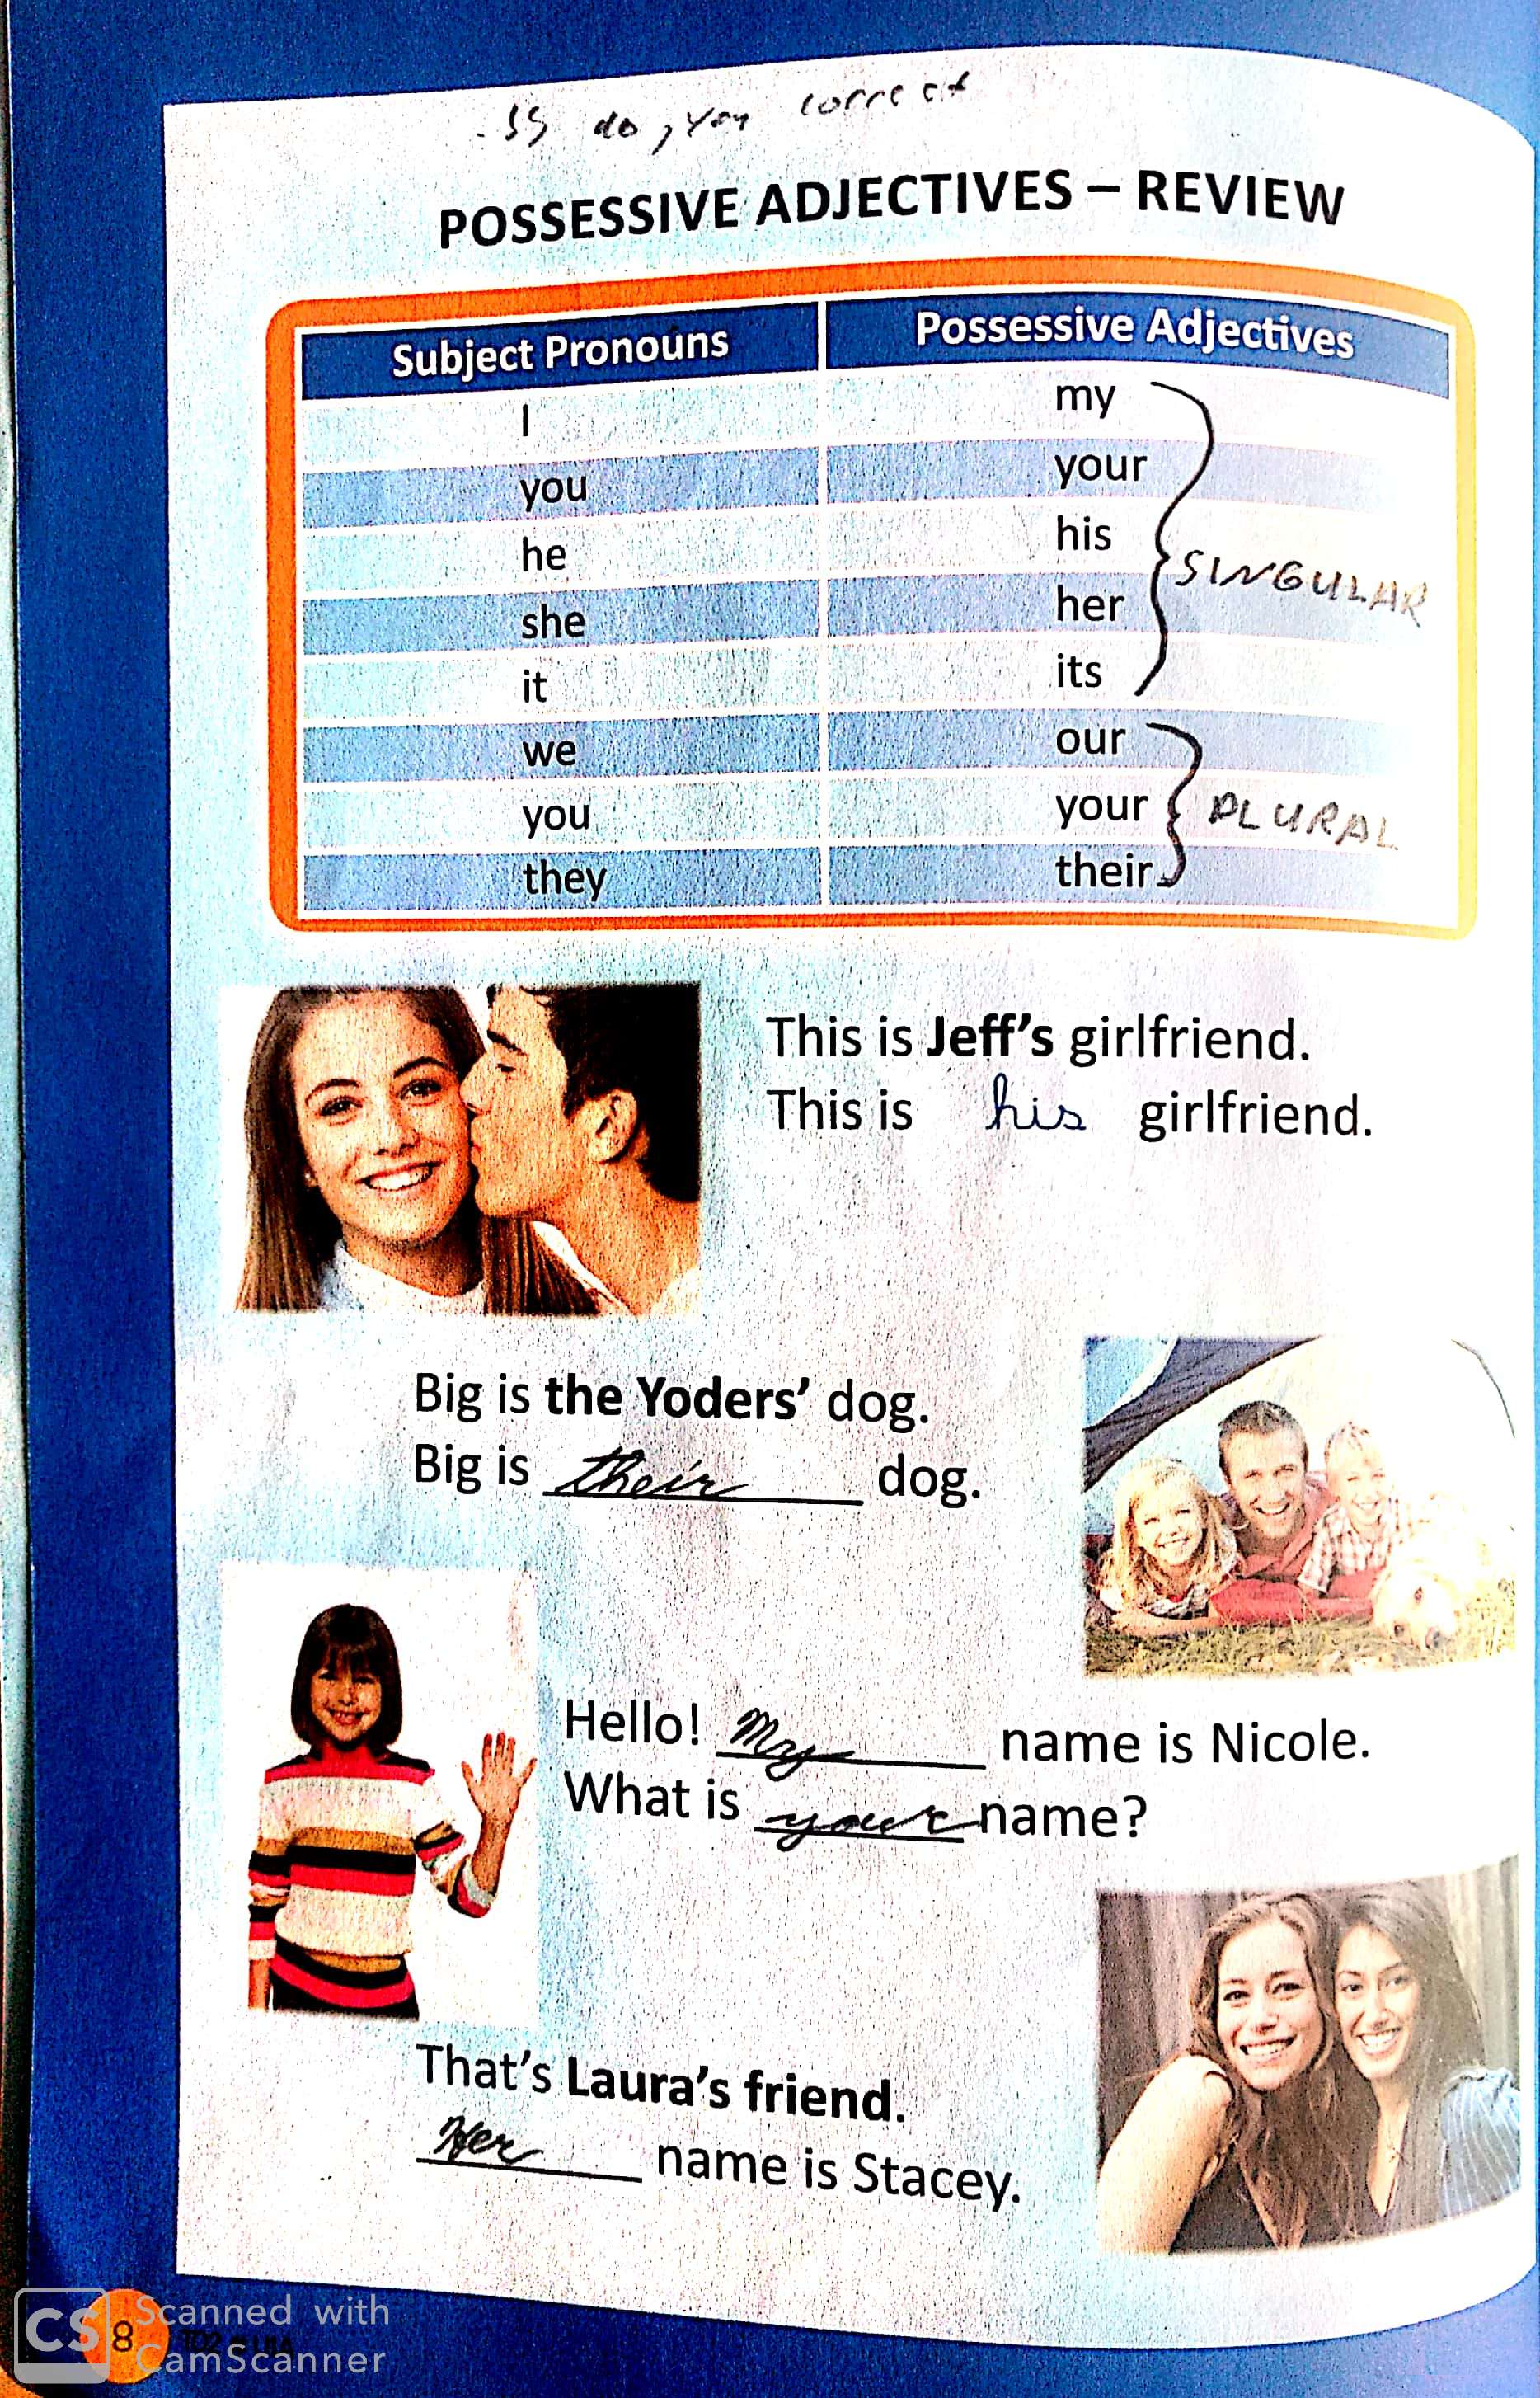 do, you correct
POSSESSIVE ADJECTIVES – REVIEW
Subject Pronouns Possessive Adjectives
I my
you your
he his
she her
it its
SINGULAR
we our
you your
they their
PLURAL
This is Jeff's girlfriend.
This is his girlfriend.
Big is the Yoders' dog.
Big is their dog.
Hello! My name is Nicole.
What is your name?
That's Laura's friend.
Her name is Stacey.
8
CS Scanned with
CamScanner